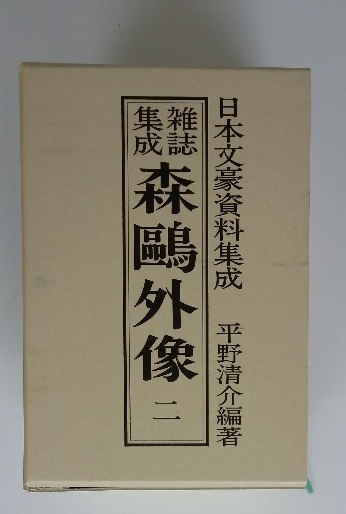 日本文豪資料集成 平野清介編著
雑誌
集成
森鷗外像 二